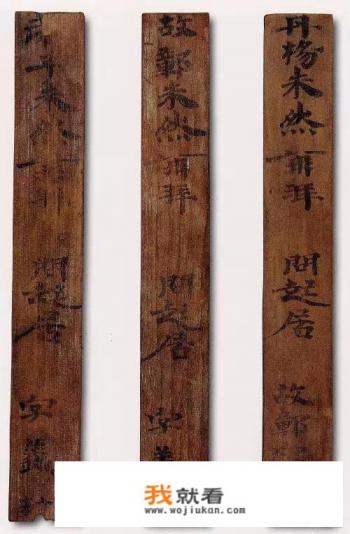 丹楊朱然再拜 問起居 故鄣
故鄣朱然再拜 問起居 字
弟子朱然再拜 問起居 字
我就看
www.wojiukan.com